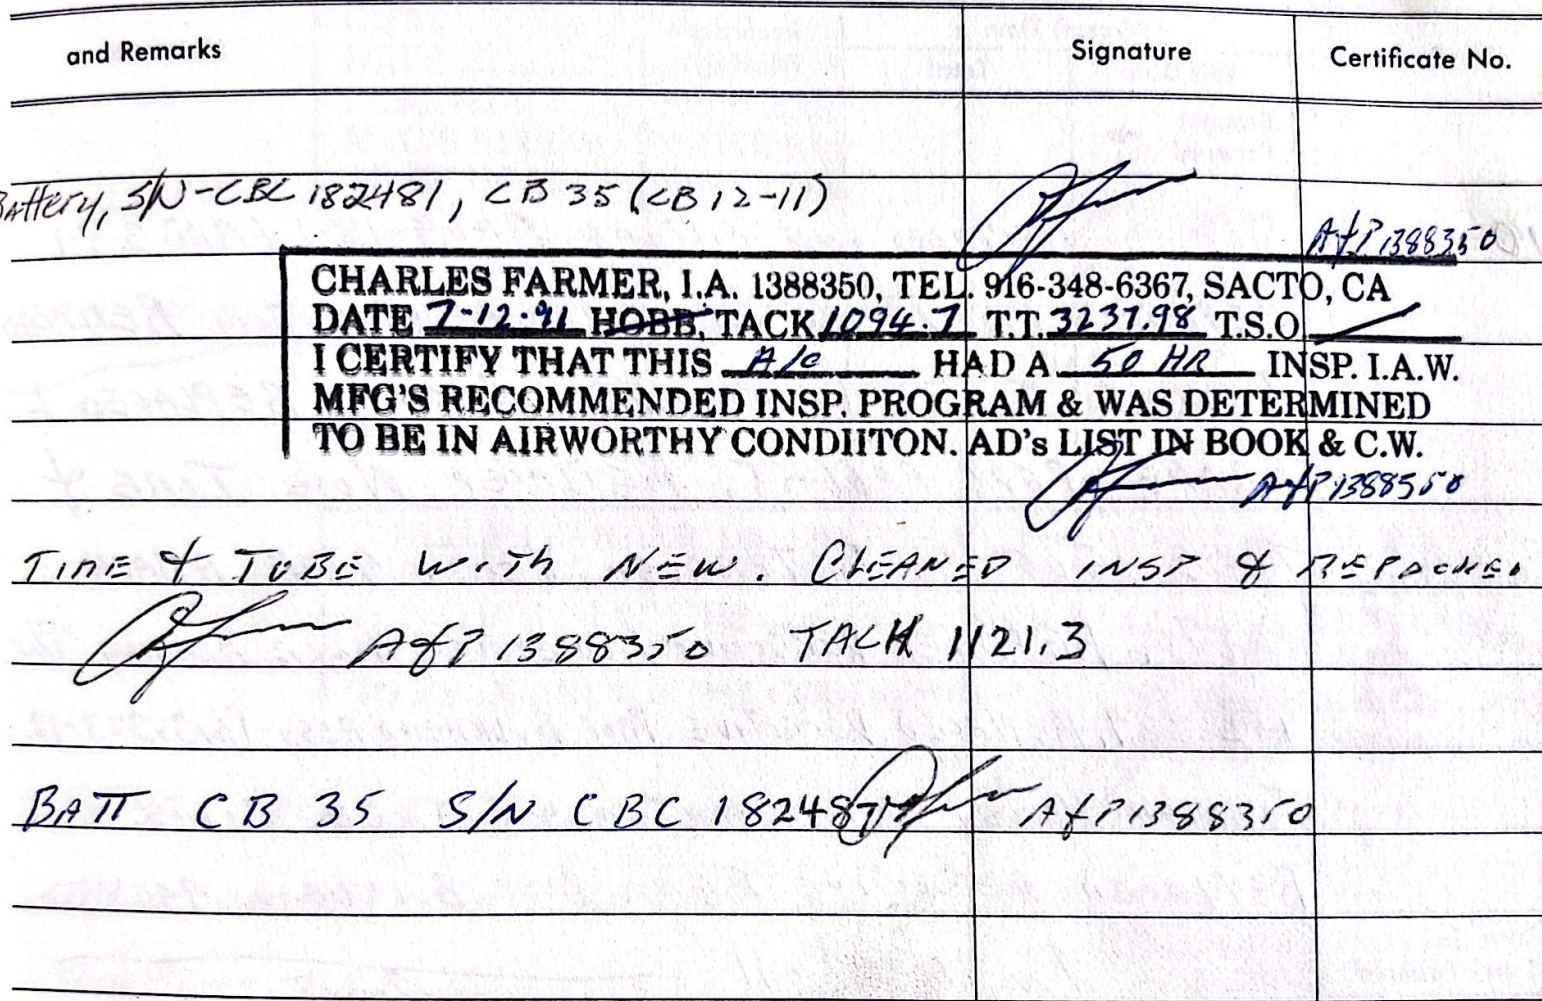 and Remarks Signature Certificate No.
Battery, S/N-CBC 182481, CB 35 (CB 12-11)
A&P 1388350
CHARLES FARMER, I.A. 1388350, TEL. 916-348-6367, SACTO, CA
DATE 7-12-91 HOBB, TACK 1094.7 T.T. 3237.98 T.S.O.
I CERTIFY THAT THIS A/C HAD A 50 HR INSP. I.A.W.
MFG'S RECOMMENDED INSP. PROGRAM & WAS DETERMINED
TO BE IN AIRWORTHY CONDIITON. AD's LIST IN BOOK & C.W.
A&P 1388350
TIRE & TUBE WITH NEW. CLEANED INSP & REPACKED
A&P 1388350 TACH 1121.3
BATT CB 35 S/N CBC 182487 A&P 1388350